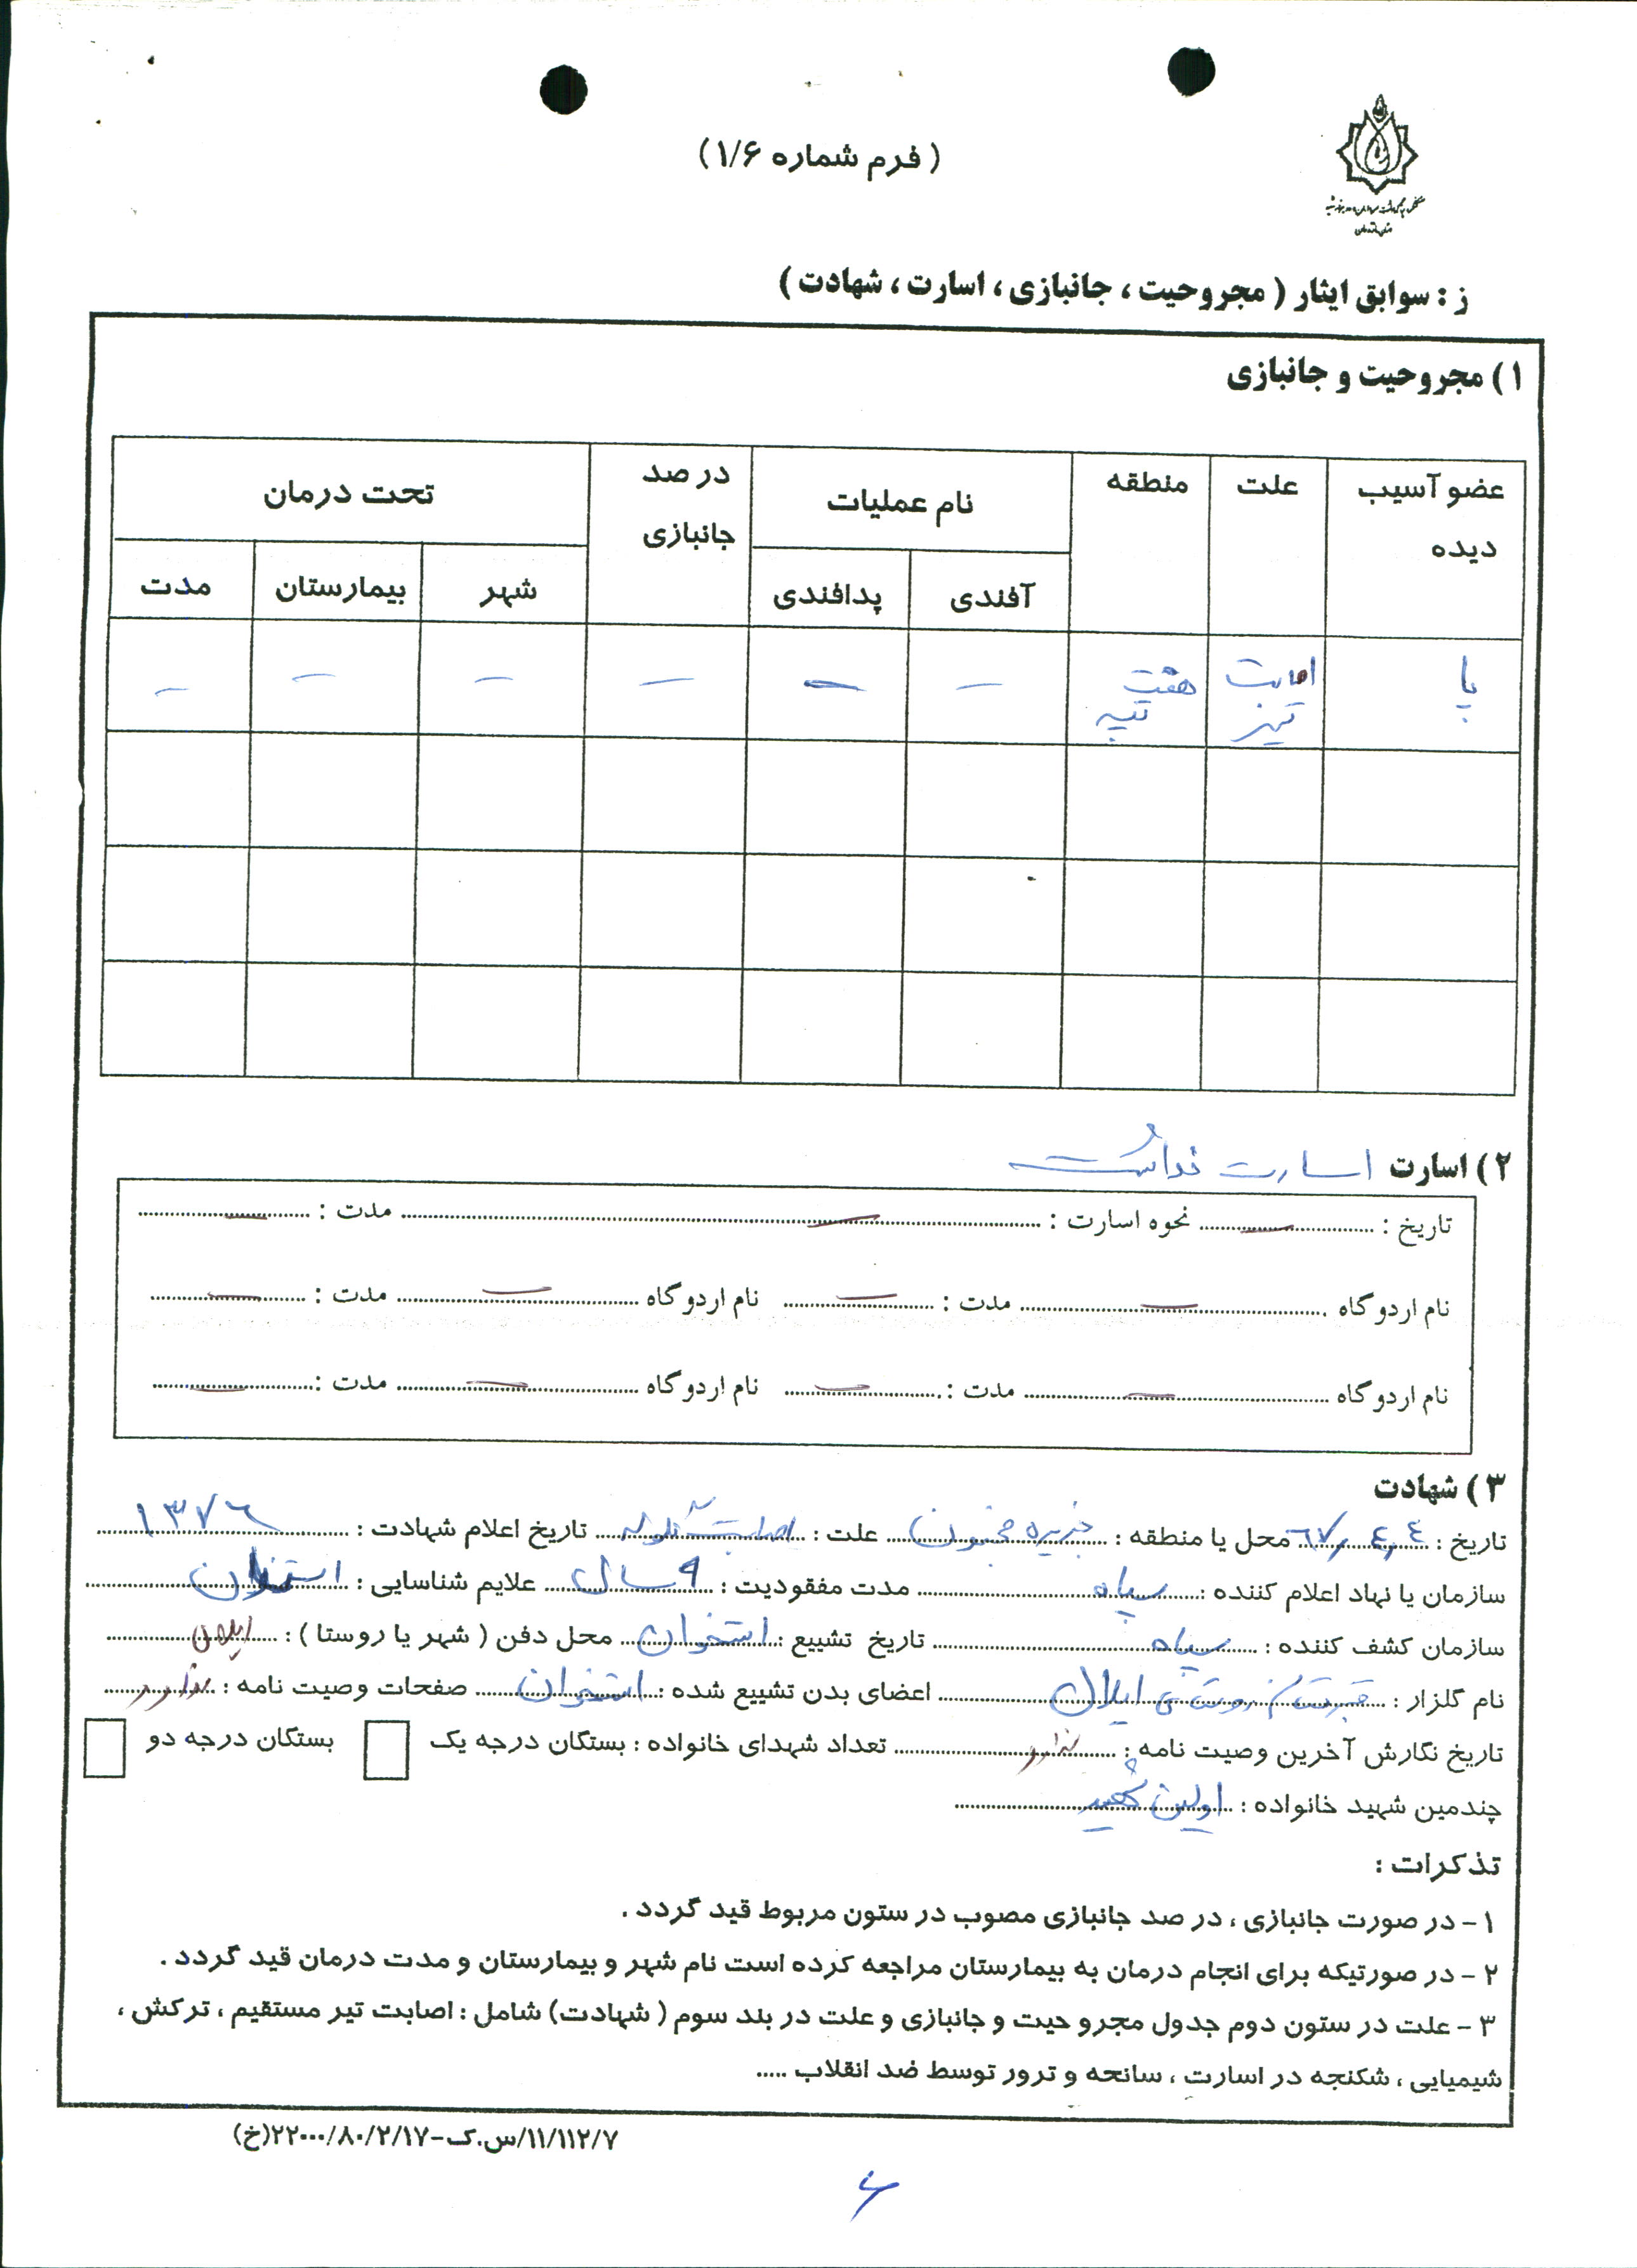 ( فرم شماره ۱/۶ )
ز : سوابق ایثار ( مجروحیت ، جانبازی ، اسارت ، شهادت )
۱ ) مجروحیت و جانبازی
عضو آسیب دیده	علت	منطقه	نام عملیات	در صد جانبازی	تحت درمان
آفندی	پدافندی	شهر	بیمارستان	مدت
پا	اصابت تیر	هفت تپه	–	–	–	–	–	–
۲ ) اسارت اسارت نداشت
تاریخ : — نحوه اسارت : — مدت : —
نام اردوگاه — مدت : — نام اردوگاه — مدت : —
نام اردوگاه — مدت : — نام اردوگاه — مدت : —
۳ ) شهادت
تاریخ : ٦٧,٤,٤ محل یا منطقه : جزیره مجنون علت : اصابت گلوله تاریخ اعلام شهادت : ١٣٧٦
سازمان یا نهاد اعلام کننده : سپاه مدت مفقودیت : ٩ سال علایم شناسایی : استخوان
سازمان کشف کننده : سپاه تاریخ تشییع : استخوان محل دفن ( شهر یا روستا ) :
نام گلزار : اعضای بدن تشییع شده : استخوان صفحات وصیت نامه : ندارد
تاریخ نگارش آخرین وصیت نامه : ندارد تعداد شهدای خانواده : بستگان درجه یک بستگان درجه دو
چندمین شهید خانواده : اولین شهید
تذکرات :
۱ - در صورت جانبازی ، در صد جانبازی مصوب در ستون مربوط قید گردد .
۲ - در صورتیکه برای انجام درمان به بیمارستان مراجعه کرده است نام شهر و بیمارستان و مدت درمان قید گردد .
۳ - علت در ستون دوم جدول مجرو حیت و جانبازی و علت در بند سوم ( شهادت) شامل : اصابت تیر مستقیم ، ترکش ،
شیمیایی ، شکنجه در اسارت ، سانحه و ترور توسط ضد انقلاب .....
۱۱/۱۱۲/۷/س.ک-۲۲۰۰۰/۸۰/۲/۱۷(خ)
۶